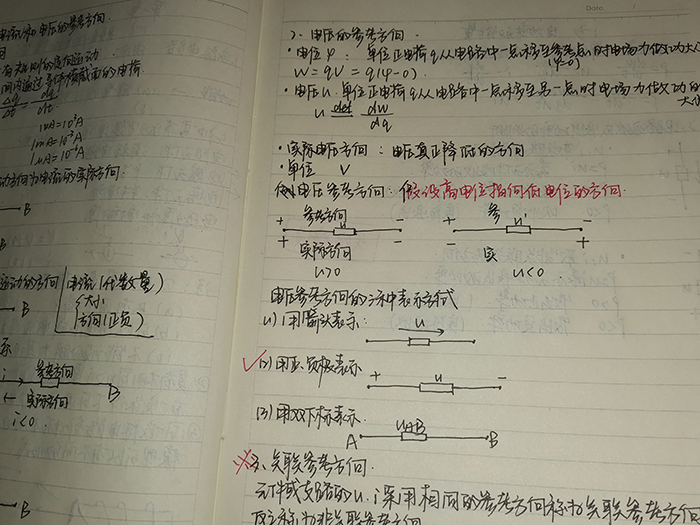 电流和电压的参考方向
1kA=10³A
1mA=10⁻³A
1μA=10⁻⁶A
动方向为电流的实际方向
B
B
运动的方向
电流(代数量)
大小
方向(正负)
B
参考方向
i
B
实际方向
i<0
B
Date
2、电压的参考方向.
·电位φ: 单位正电荷q从电路中一点移至参考点时电场力做功大小
(φ=0)
W=qV=q(φ-0)
·电压u: 单位正电荷q从电路中一点移至另一点时电场力做功的
大小
u def dw
dq
·实际电压方向: 电压真正降低的方向
·单位 V
电压参考方向: 假设高电位指向低电位的方向.
+ 参考方向 -
u
+ 实际方向 -
u>0
+ 参 -
u'
- 实 +
u<0
电压参考方向的三种表示方式
(1)用箭头表示:
u
(2)用正、负极表示
+ u -
(3)用双下标表示.
A uAB B
※3、关联参考方向.
元件或支路的u、i采用相同的参考方向称为关联参考方向
反之称为非关联参考方向